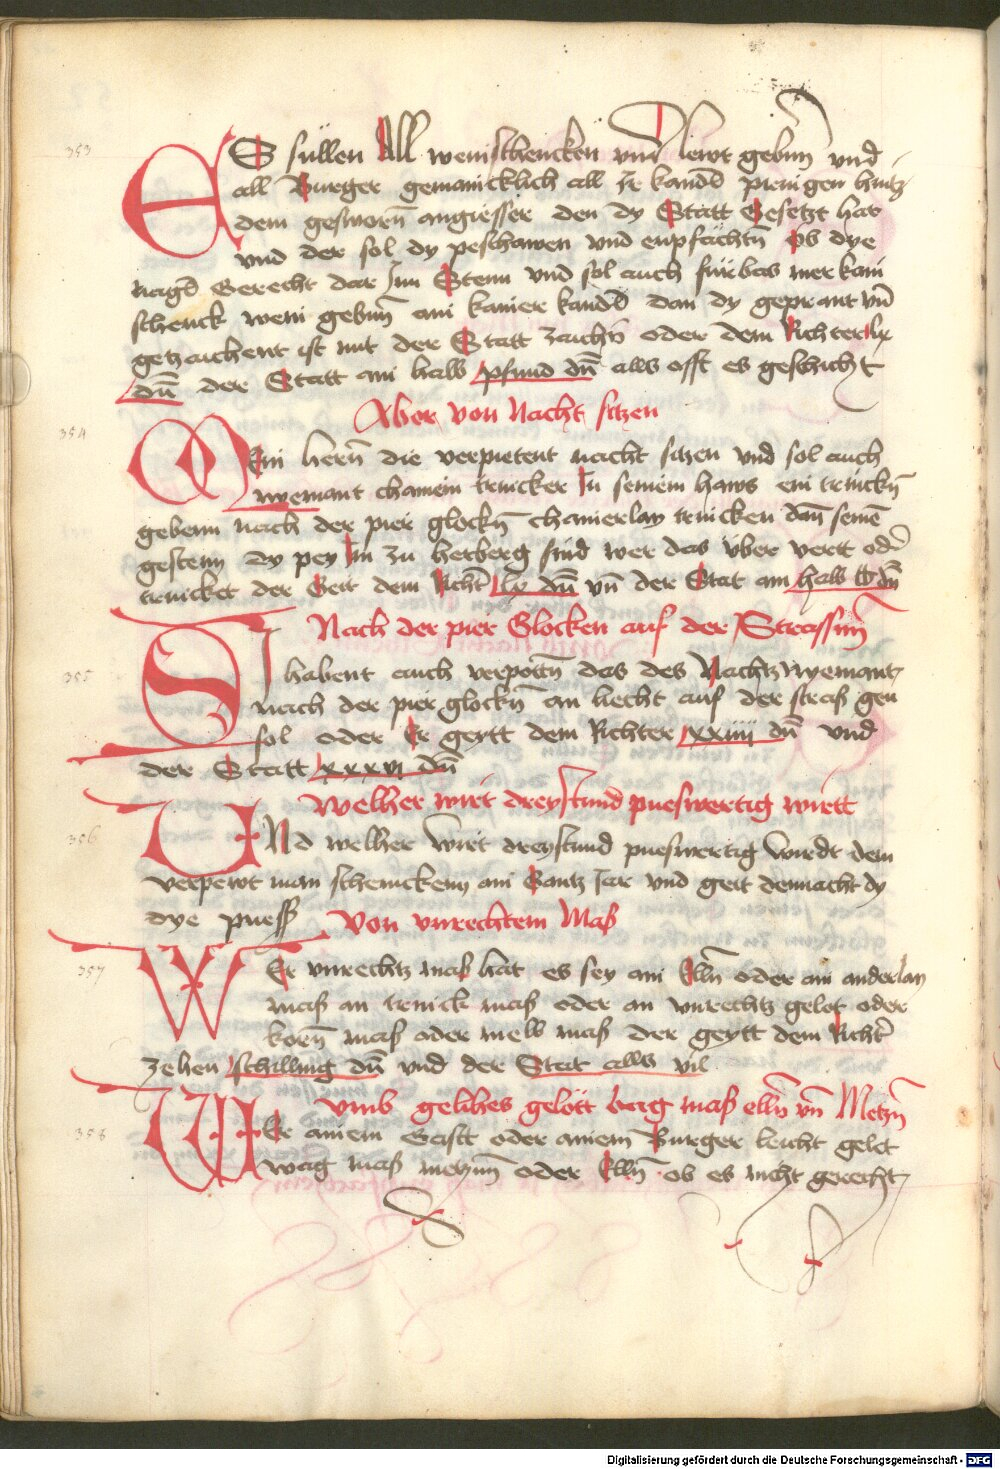 353
ES süllen All weinschencken und lewt gebñ und
all Burger gemainicklich all Ir kandl pringen hintz
dem gesworñ angiesser den dy Statt Gesetzt hat
und der sol dy peschawen und enpfächtñ Ob dye
nagl Gerecht dar Inn Stenn und sol auch fürbas mer kain
schenck wein gebñ aus kainer kandl dan dy geprant uñ
getzaichent ist mit der Statt zaichñ oder dem Richter lx
dñ der Statt ain halb pfund dñ alls offt es geschicht
Aber von Nacht sitzen
354
Mein herñ die verpietent nacht sitzen und sol auch
nyemant chainem trincker In seinem haws ein trinckñ
gebenn nach der pier glockñ chainerlay trincken dañ seinē
gestenn dy pey Im zu herberg sind wer das über vert odr
trincket der Geit dem Richtr lx dñ uñ der Stat ain halb lb dñ
Nach der pier Glocken auf der Strassnn
355
SI habent auch verpottñ das des Nachtz Nyemant
nach der pier glockñ an liecht auf der straß gen
sol oder Er geytt dem Richter xxiiii dñ und
der Statt xxxvi dñ
Welher wirt dreystund pueswertig wirtt
356
UNd welher wirt dreystund pueswertig wirdt dem
verpewt man schenncken ain Gantz Jar und geit dennacht dy
dye puess
Von unrechtem Mas
357
WEr unrechtz maß hat es sey ain Ellñ oder ain anderlay
maß an trinck maß oder an unrechtz gelot oder
korñ maß oder melb maß der geytt dem Richtr
zehen schilling dñ und der Stat alls vil
Umb gelihes gelött wag maß ellñ uñ Metzñ
358
WEr ainem Gastt oder ainem Burger leicht gelot
wag maß metznn oder Ellñ ob es nicht gerecht
Digitalisierung gefördert durch die Deutsche Forschungsgemeinschaft - DFG